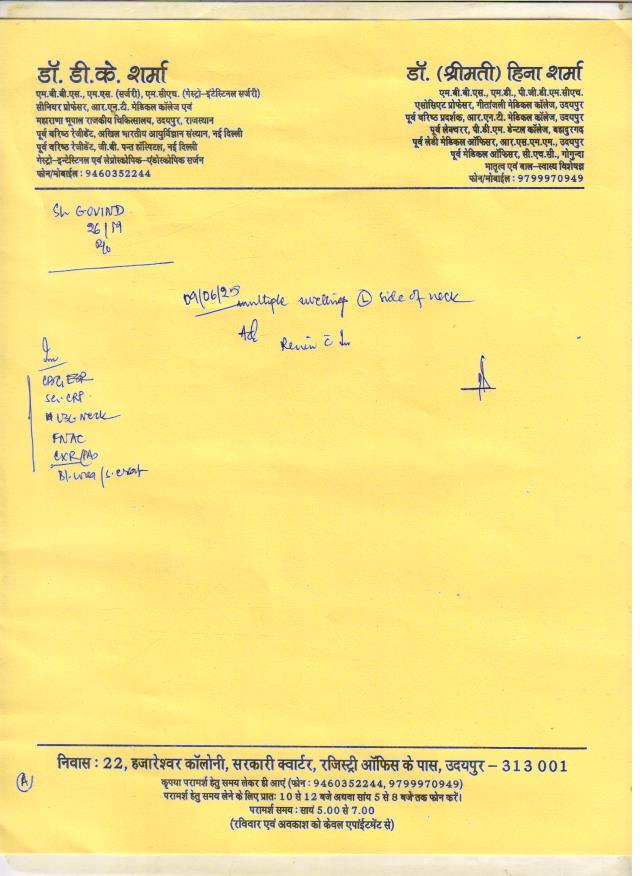 डॉ. डी.के. शर्मा
एम.बी.बी.एस., एम.एस. (सर्जरी), एम.सीएच. (गेस्ट्रो-इंटेस्टिनल सर्जरी)
सीनियर प्रोफेसर, आर.एन.टी. मेडिकल कॉलेज एवं
महाराणा भूपाल राजकीय चिकित्सालय, उदयपुर, राजस्थान
पूर्व वरिष्ठ रेजीडेंट, अखिल भारतीय आयुर्विज्ञान संस्थान, नई दिल्ली
पूर्व वरिष्ठ रेजीडेंट, जी.बी. पन्त हॉस्पिटल, नई दिल्ली
गेस्ट्रो-इन्टेस्टिनल एवं लेप्रोस्कोपिक-एंडोस्कोपिक सर्जन
फोन/मोबाईल : 9460352244
डॉ. (श्रीमती) हिना शर्मा
एम.बी.बी.एस., एम.डी., पी.जी.डी.एम.सीएच.
एसोसिएट प्रोफेसर, गीतांजली मेडिकल कॉलेज, उदयपुर
पूर्व वरिष्ठ प्रदर्शक, आर.एन.टी. मेडिकल कॉलेज, उदयपुर
पूर्व लेक्चरर, पी.डी.एम. डेन्टल कॉलेज, बहादुरगढ़
पूर्व लेडी मेडिकल ऑफिसर, आर.एस.एम.एम., उदयपुर
पूर्व मेडिकल ऑफिसर, सी.एच.सी., गोगुन्दा
मातृत्व एवं बाल-स्वास्थ्य विशेषज्ञ
फोन/मोबाईल : 9799970949
Sh GOVIND
26/M
09/06/25 multiple swelling Ⓛ side of neck
Adv
Review c̄ Inv
Inv
CBC, ESR
Sr. CRP
USG NECK
FNAC
CXR/PA
Bl. urea / S. creat
निवास : 22, हजारेश्वर कॉलोनी, सरकारी क्वार्टर, रजिस्ट्री ऑफिस के पास, उदयपुर – 313 001
कृपया परामर्श हेतु समय लेकर ही आएं (फोन : 9460352244, 9799970949)
परामर्श हेतु समय लेने के लिए प्रातः 10 से 12 बजे अथवा सांय 5 से 8 बजे तक फोन करें।
परामर्श समय : सायं 5.00 से 7.00
(रविवार एवं अवकाश को केवल एपॉईंटमेंट से)
Ⓐ